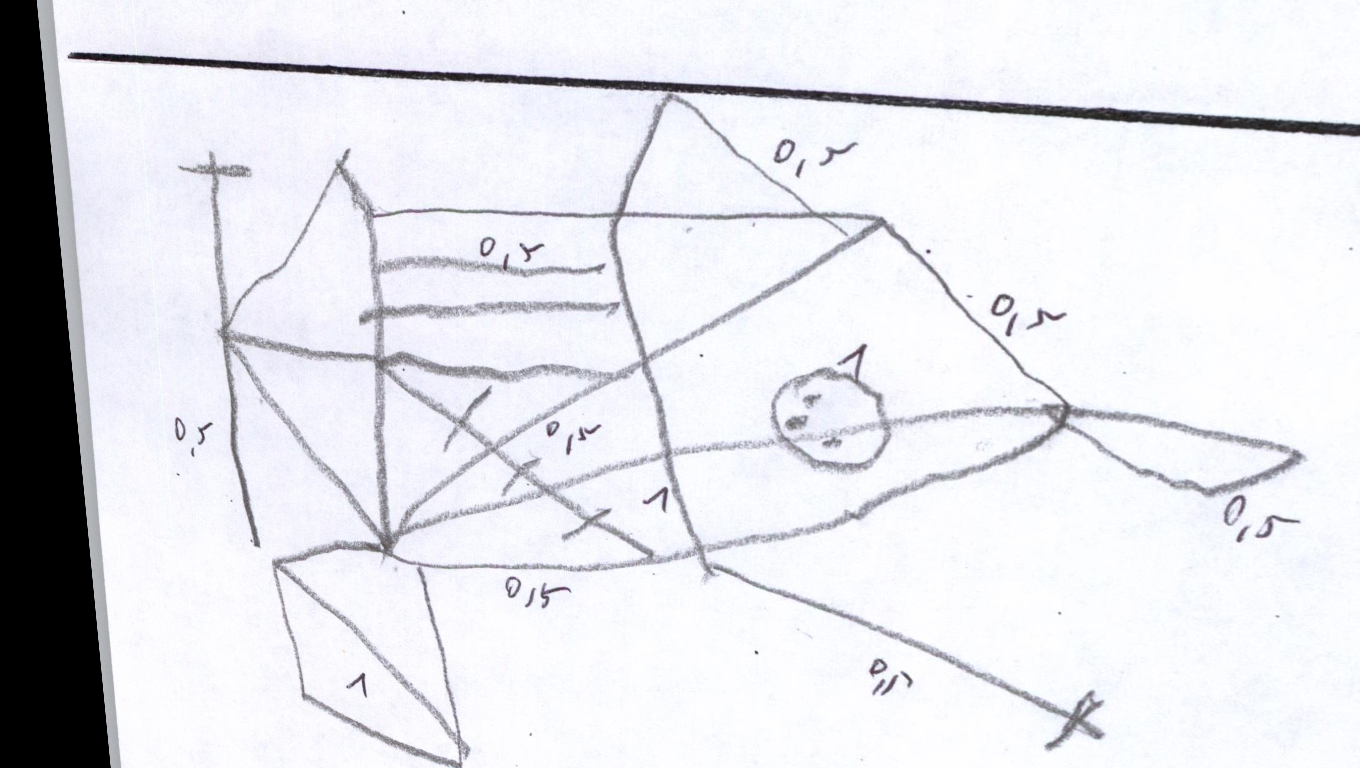 0,5
0,5
0,5
1
0,5
0,5
1
0,5
0,5
0,5
1